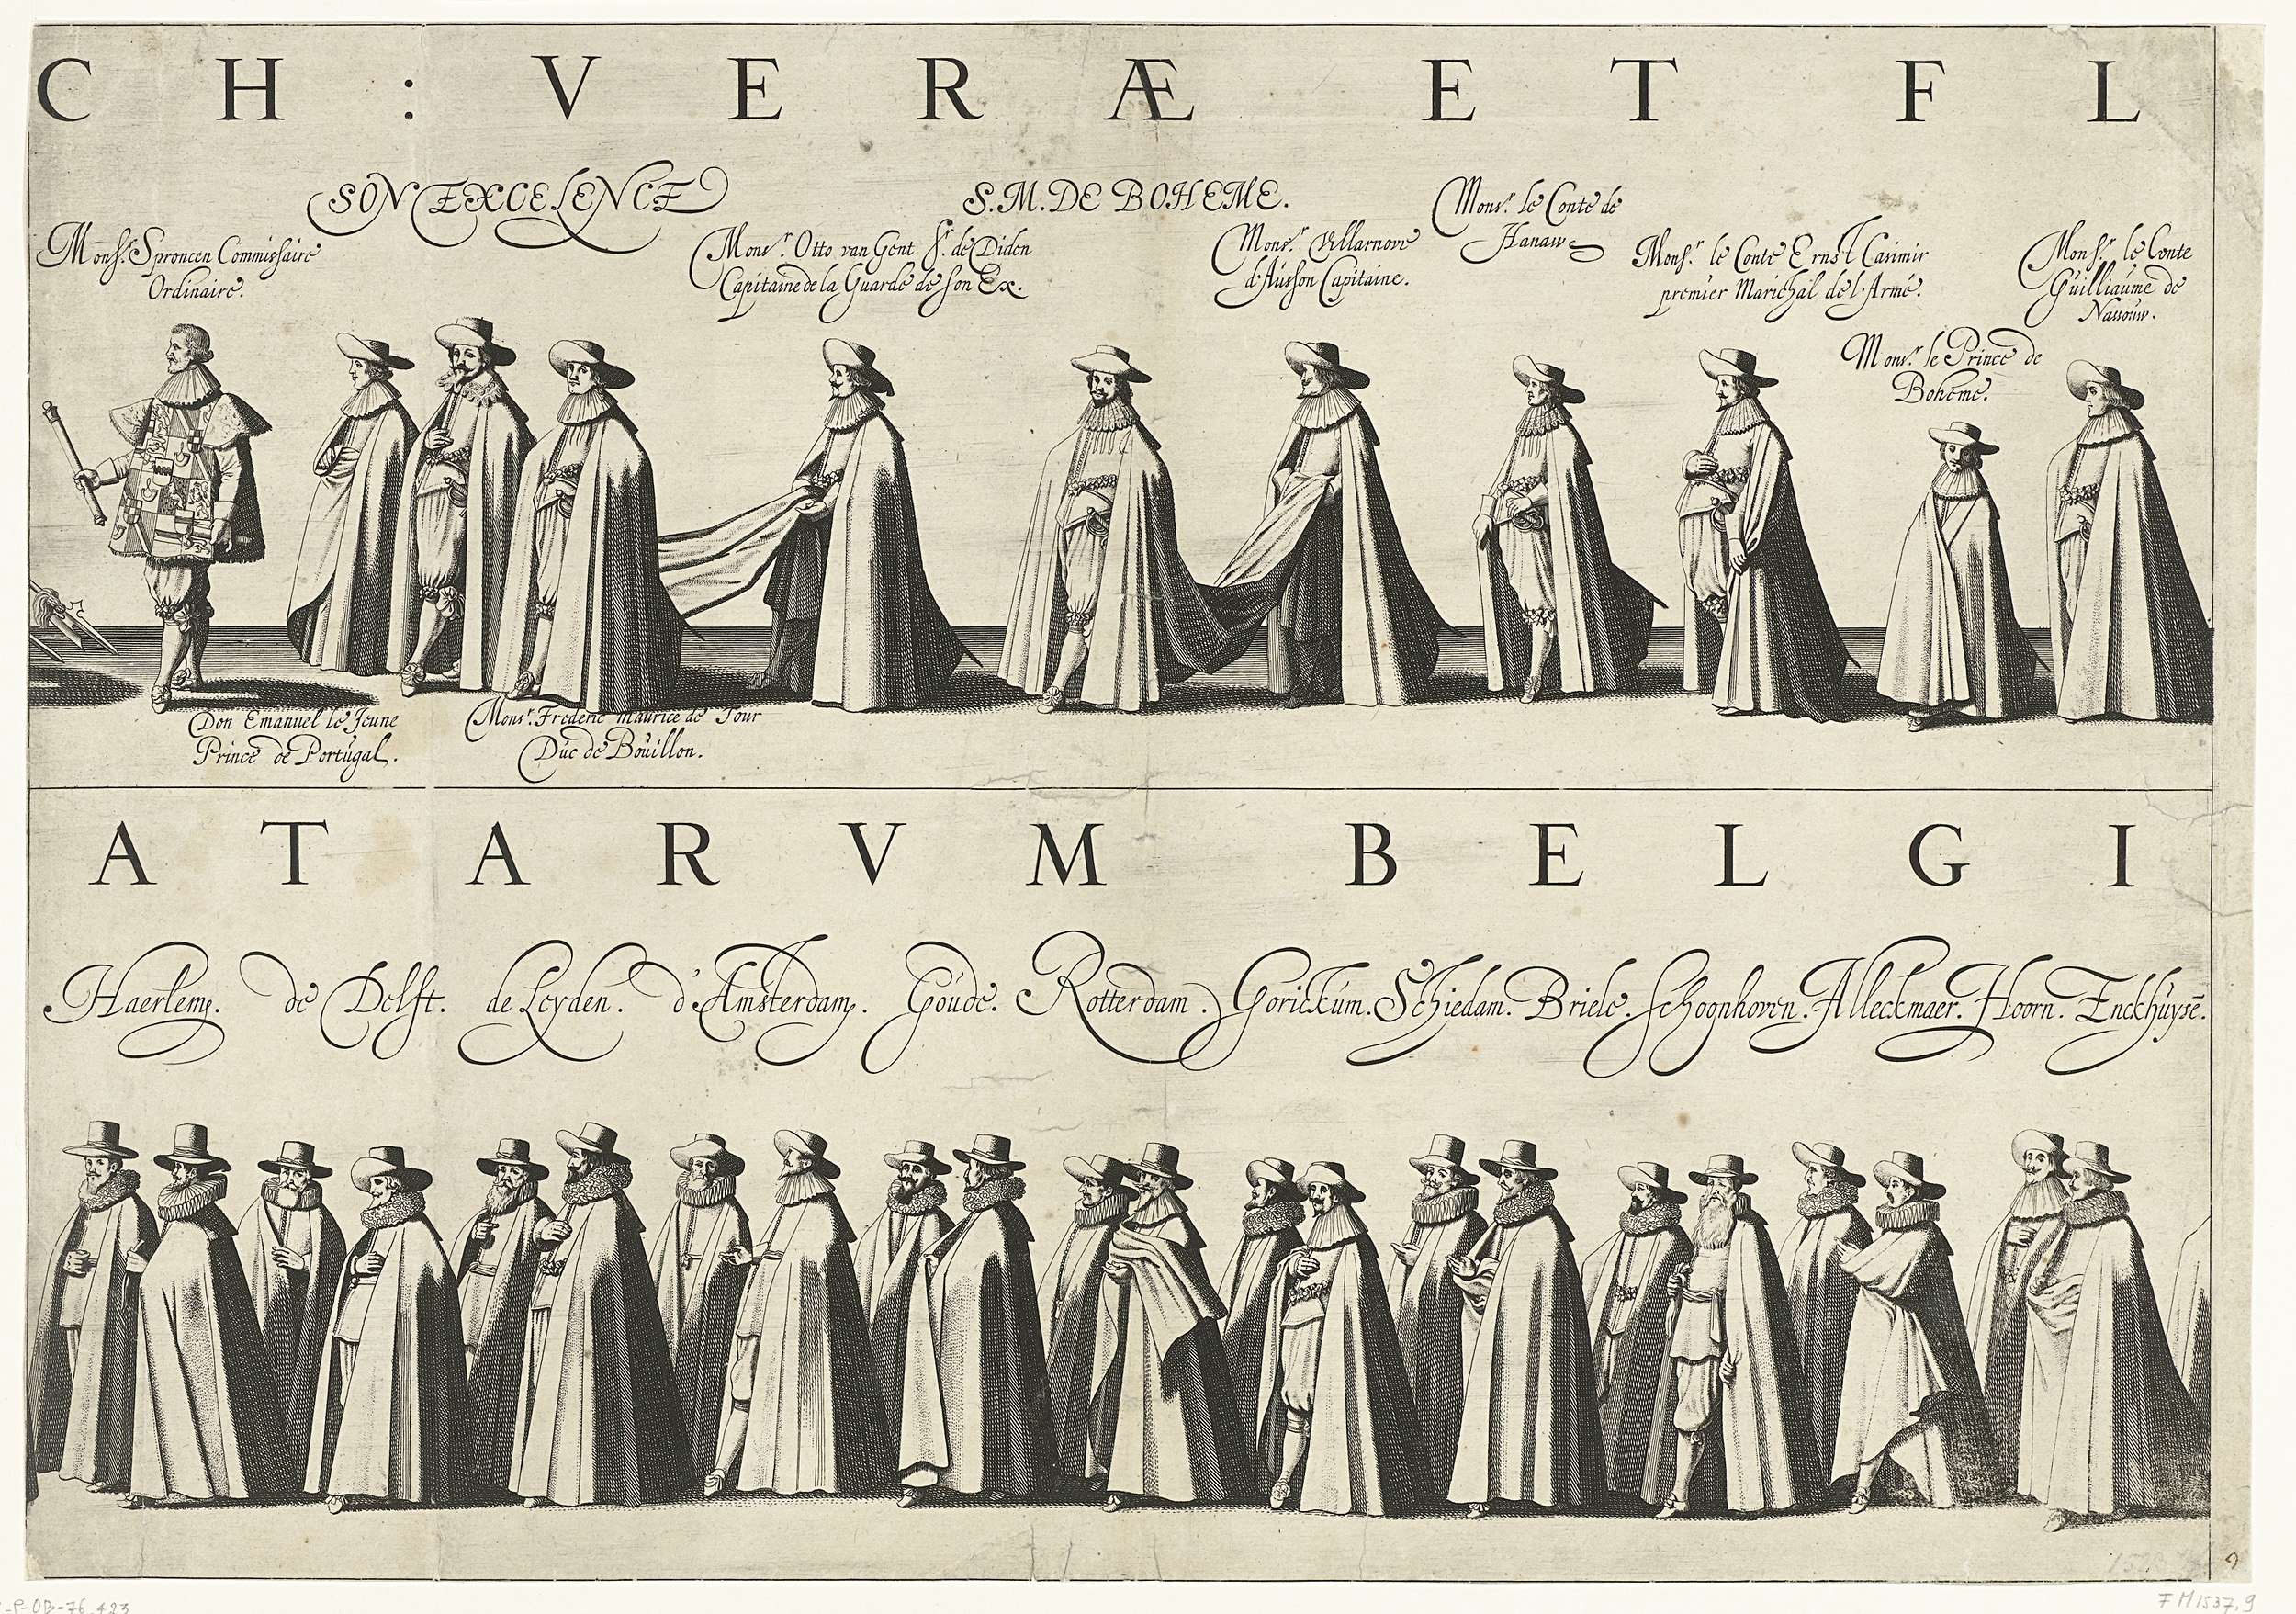 C H : V E R Æ E T F L
SON EXCELENCE
S. M. DE BOHEME.
Monsr. Sproncen Commissaire
Ordinaire.
Monsr. Otto van Gent Sr. de Diden
Capitaine de la Guarde de son Ex.
Monsr. Villarnove
d'Ausson Capitaine.
Monsr. le Conte de
Hanaw
Monsr. le Conte Ernst Casimir
premier Marichal de l'Armé.
Monsr. le Prince de
Bohéme.
Monsr. le Conte
Guilliaume de
Nassouw.
Don Emanuel le Jeune
Prince de Portugal.
Monsr. Frederic Maurice de Tour
Duc de Bouillon.
A T A R V M B E L G I
Haerlem. de Delft. de Leyden. d'Amsterdam. Goude. Rotterdam. Gorickum. Schiedam. Briele. Schoonhoven. Alleckmaer. Hoorn. Enckhuysē.
-P-OB-76.423
FM1537.9